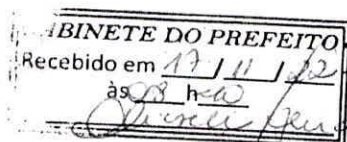 IBINETE DO PREFEITO
Recebido em 17/11/22
às 08 h